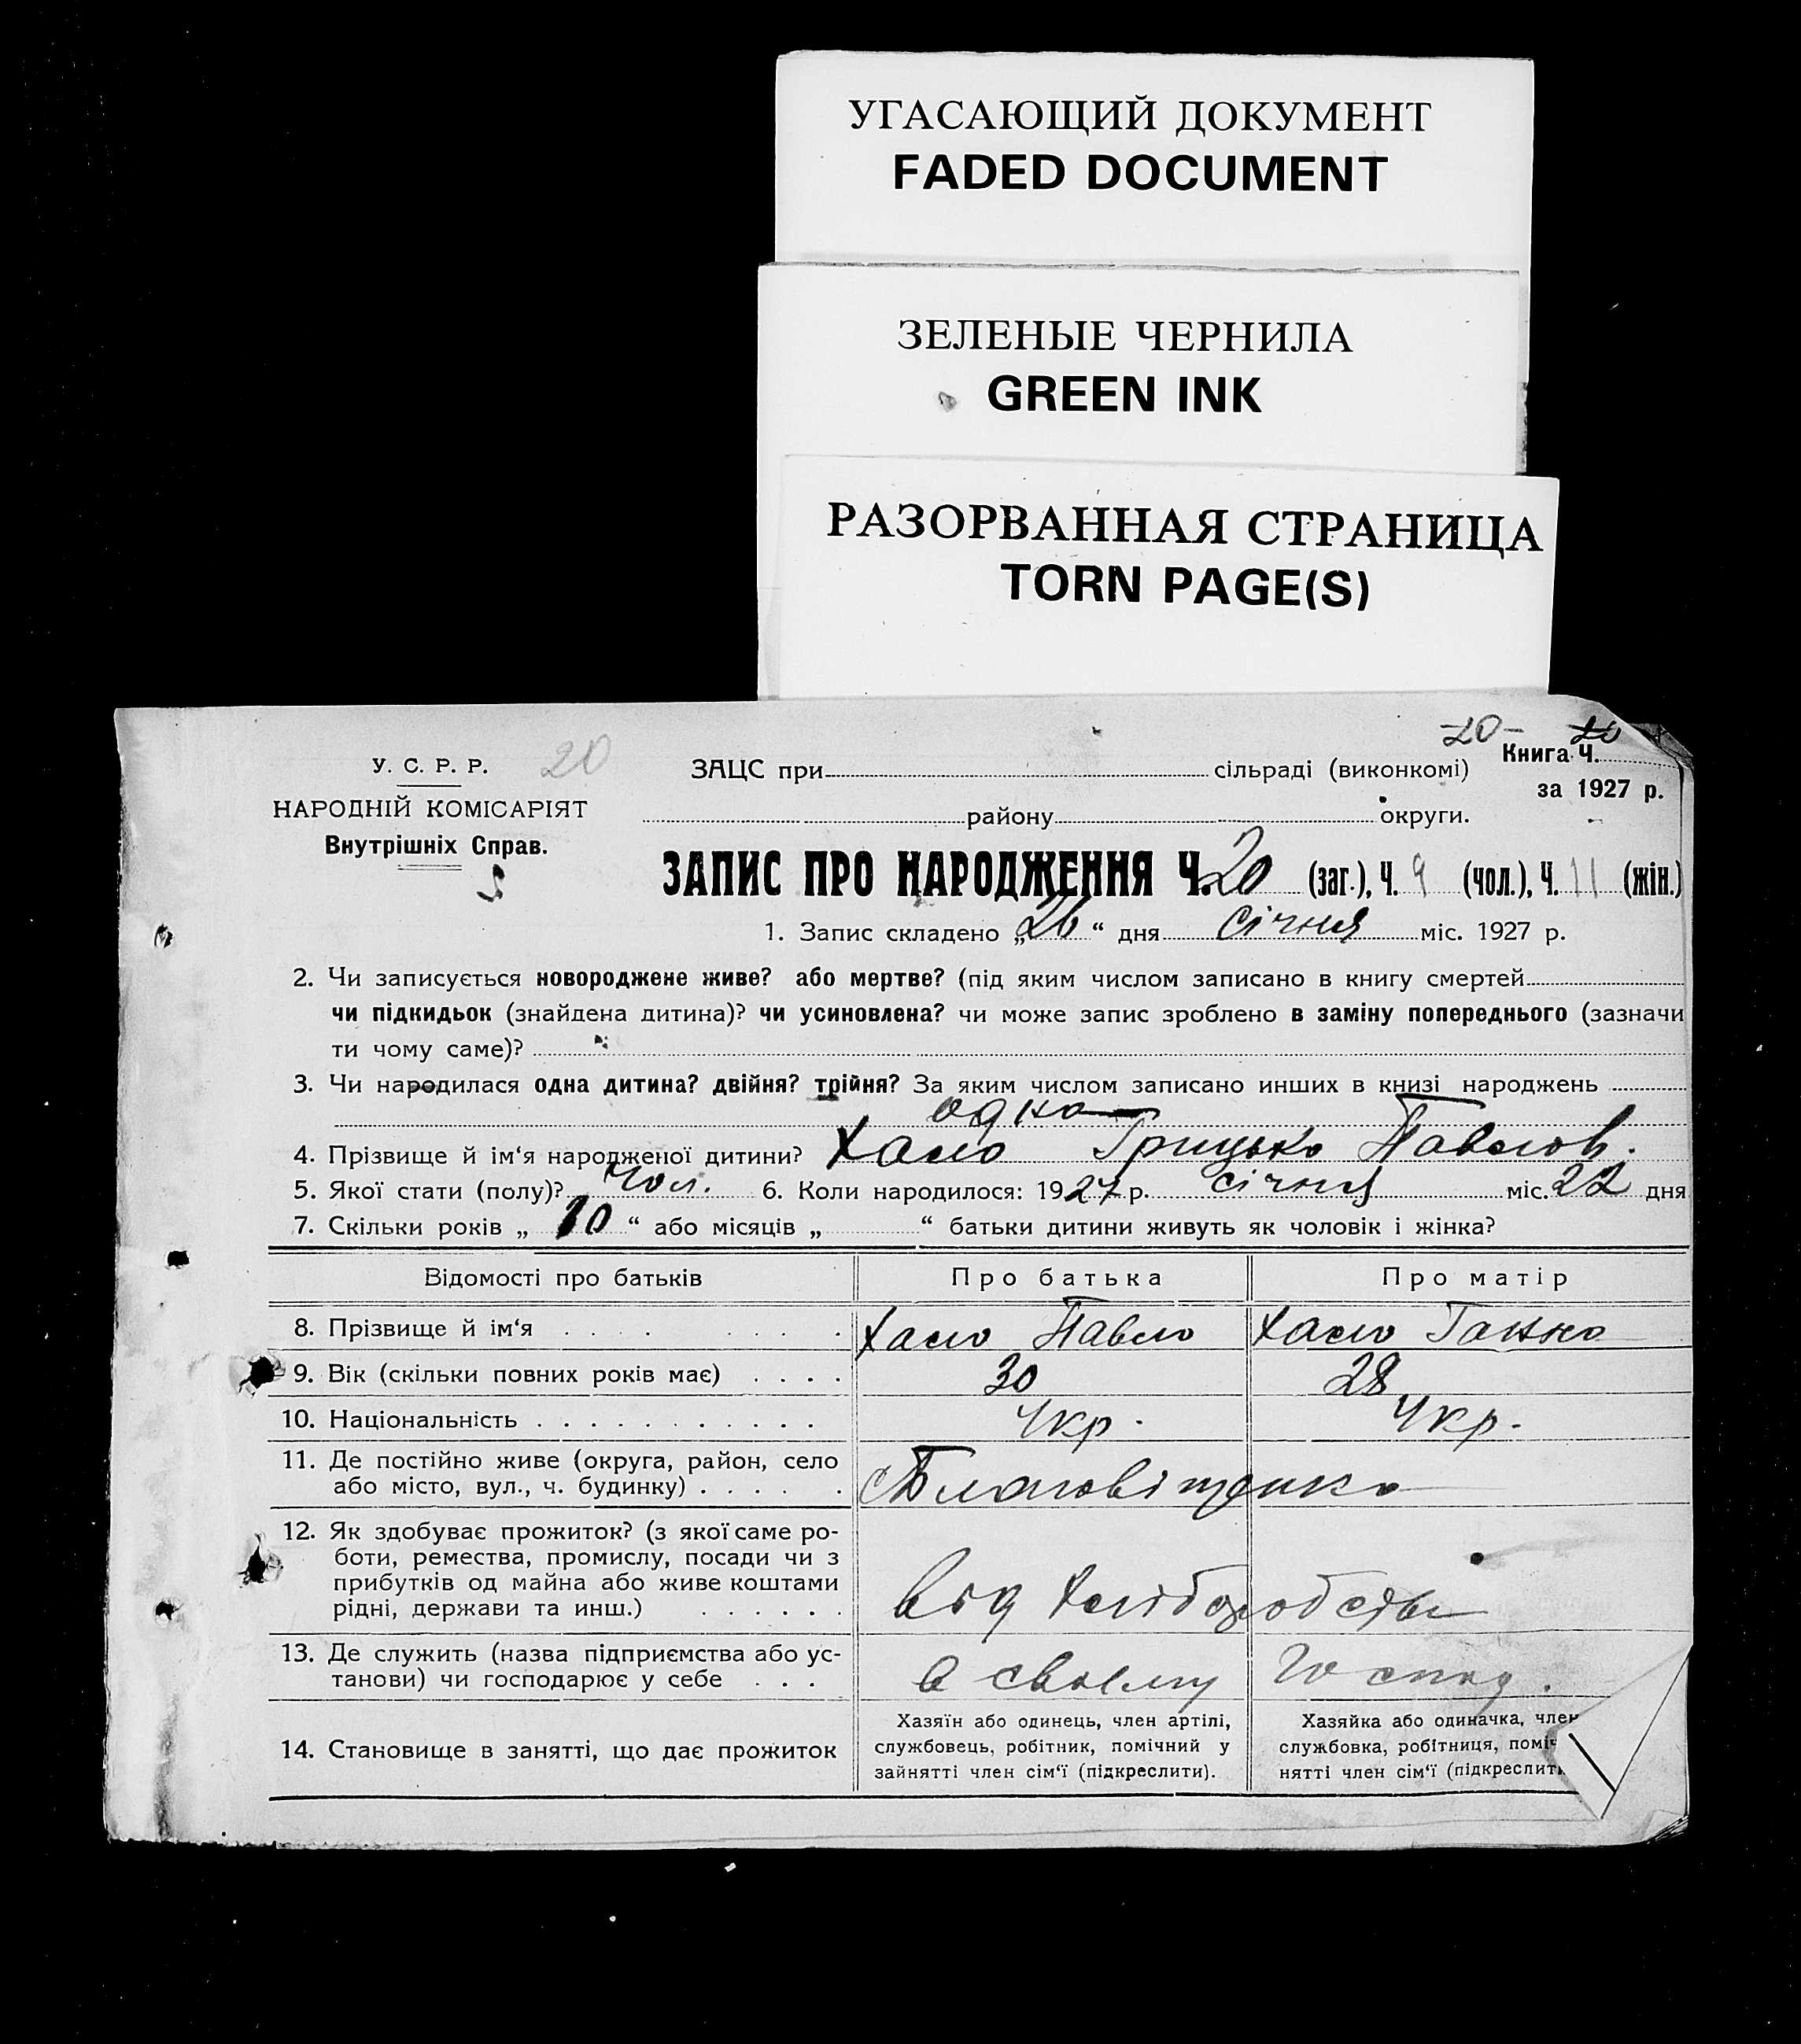 УГАСАЮЩИЙ ДОКУМЕНТ
FADED DOCUMENT
ЗЕЛЕНЫЕ ЧЕРНИЛА
GREEN INK
РАЗОРВАННАЯ СТРАНИЦА
TORN PAGE(S)
20- 20
У. С. Р. Р. 20 ЗАЦС при сільраді (виконкомі) Книга Ч.
за 1927 р.
НАРОДНІЙ КОМІСАРІЯТ району округи.
Внутрішніх Справ.
ЗАПИС ПРО НАРОДЖЕННЯ Ч. 20 (заг.), Ч. 9 (чол.), Ч. 11 (жін.)
1. Запис складено „26“ дня січня міс. 1927 р.
2. Чи записується новороджене живе? або мертве? (під яким числом записано в книгу смертей
чи підкидьок (знайдена дитина)? чи усиновлена? чи може запис зроблено в заміну попереднього (зазначи
ти чому саме)?
3. Чи народилася одна дитина? двійня? трійня? За яким числом записано инших в книзі народжень
одна
4. Прізвище й ім‘я народженої дитини? Хало Грицько Павлов.
5. Якої стати (полу)? чол. 6. Коли народилося: 1927 р. січня міс. 22 дня
7. Скільки років „ 10 “ або місяців „ “ батьки дитини живуть як чоловік і жінка?
Відомості про батьків Про батька Про матір
8. Прізвище й ім‘я . . . . . . . . Хало Павло Хало Ганна
9. Вік (скільки повних років має) . . . . 30 28
10. Національність . . . . . . . . . . . . Укр. Укр.
11. Де постійно живе (округа, район, село
або місто, вул., ч. будинку) . . . . . с Благовіщенка
12. Як здобуває прожиток? (з якої саме ро-
боти, ремества, промислу, посади чи з
прибутків од майна або живе коштами
рідні, держави та инш.) . . . . . . від хліборобства
13. Де служить (назва підприємства або ус-
танови) чи господарює у себе . . . в своєму господ.
14. Становище в занятті, що дає прожиток
Хазяїн або одинець, член артілі,
службовець, робітник, помічний у
зайнятті член сім‘ї (підкреслити).
Хазяйка або одиначка, член
службовка, робітниця, поміч
нятті член сім‘ї (підкреслити